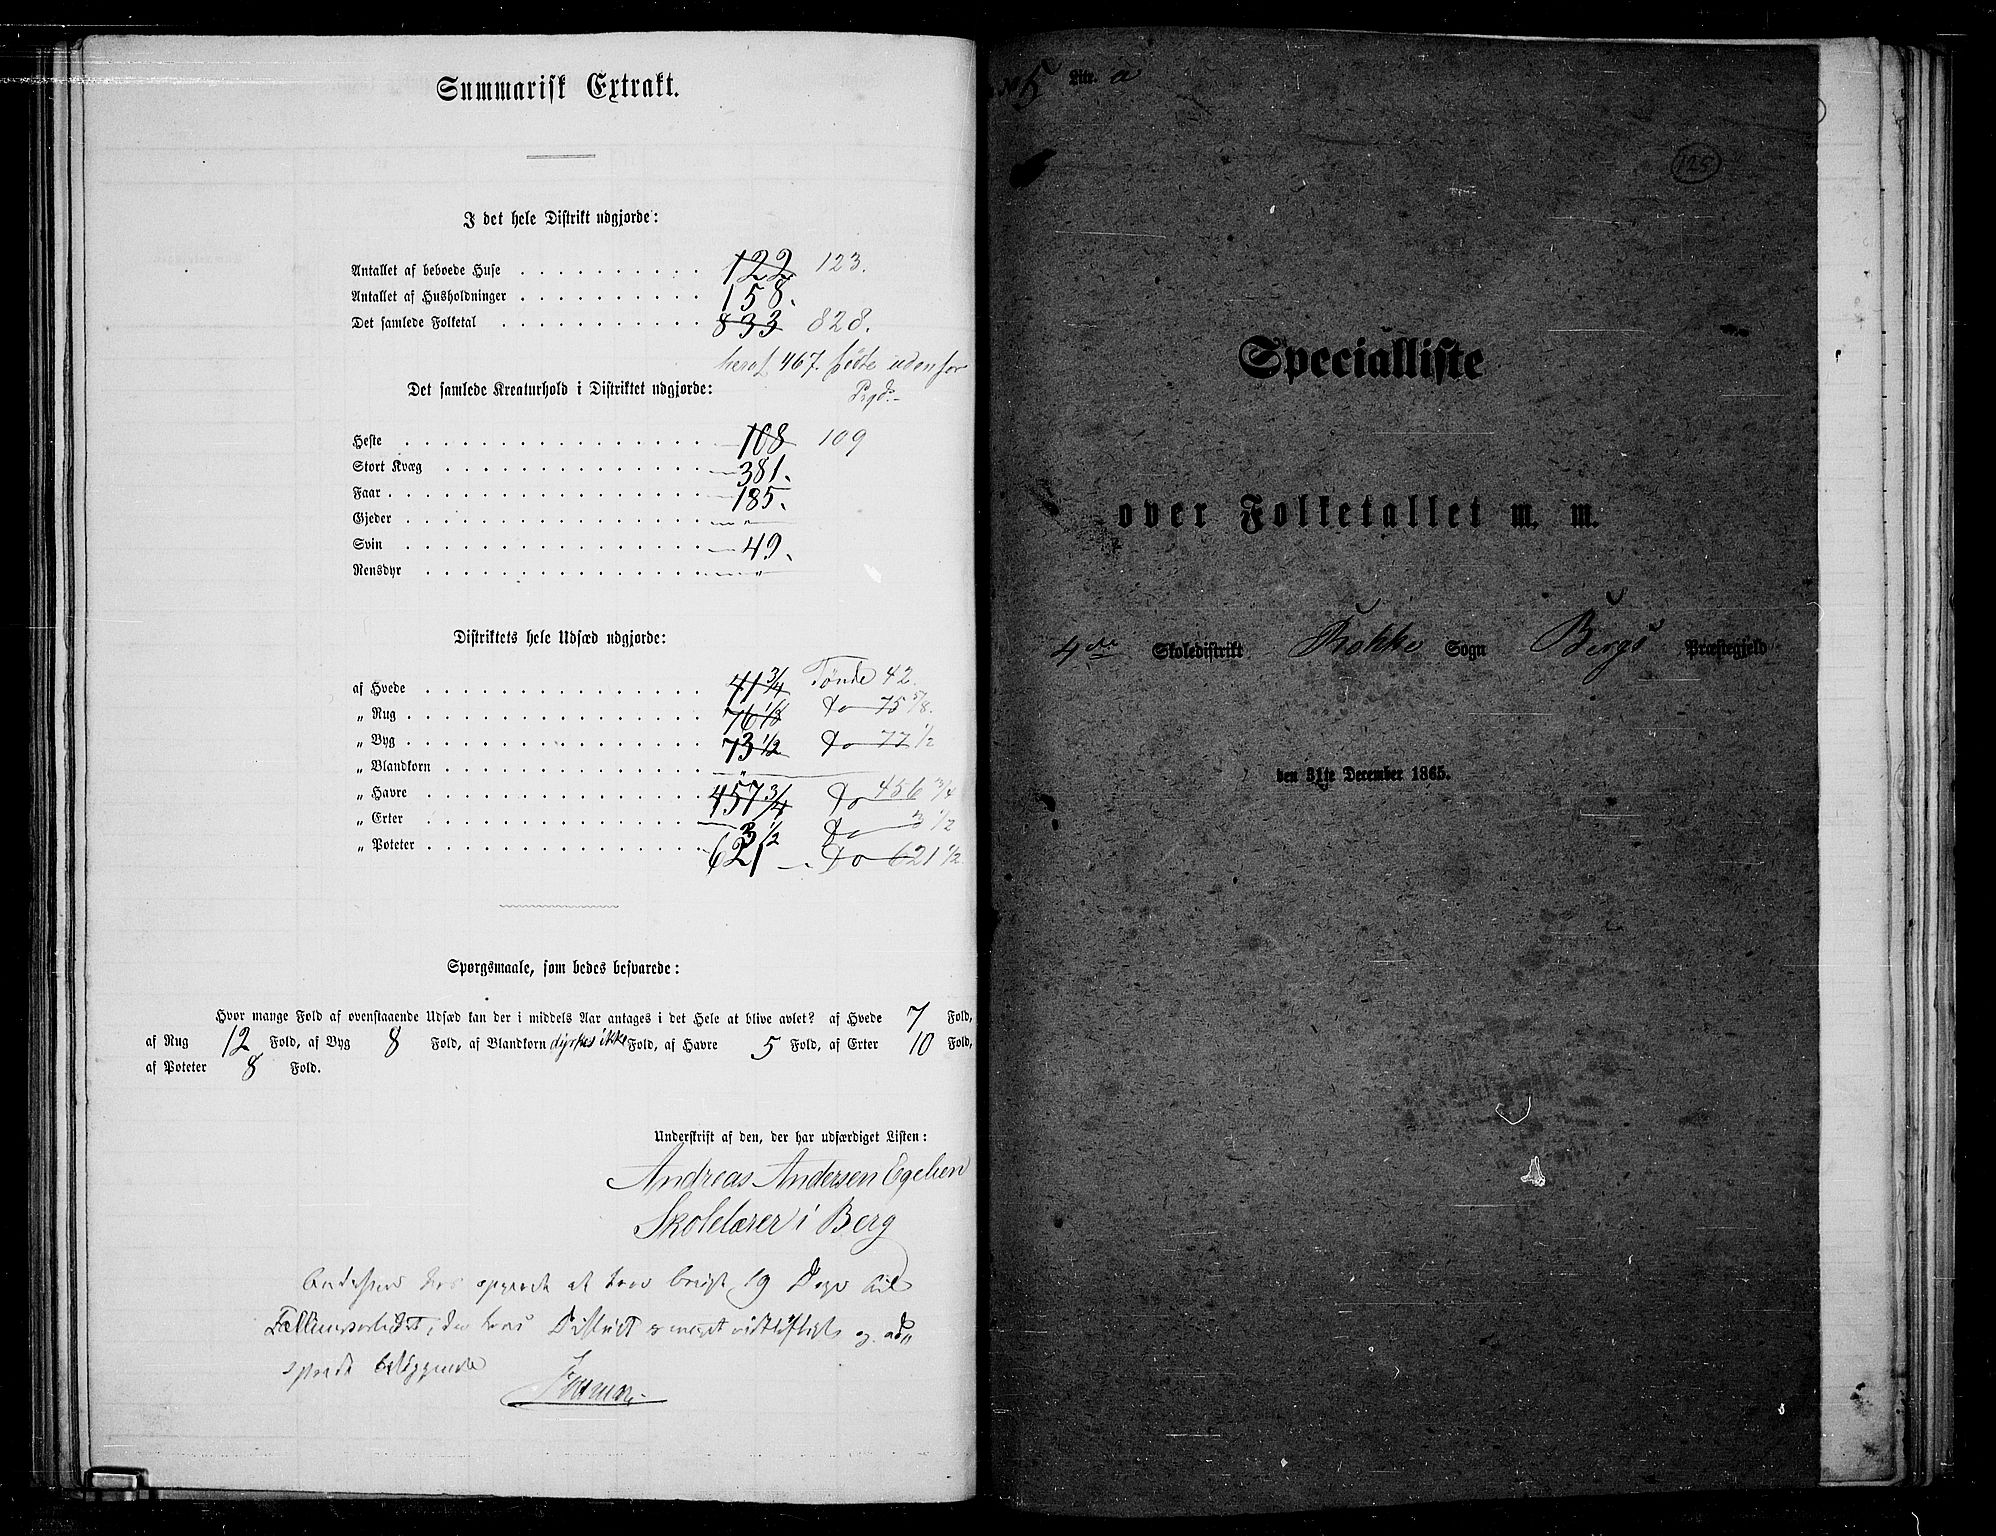 Summarisk Extrakt.
I det hele Distrikt udgjorde:
Antallet af beboede Huse . . . . . . . . . . 122 123.
Antallet af Husholdninger . . . . . . . . . . 158.
Det samlede Folketal . . . . . . . . . . 833 828.
heraf 467. fødte udenfor
Prgd.
Det samlede Kreaturhold i Distriktet udgjorde:
Heste . . . . . . . . . . 108 109
Stort Kvæg . . . . . . . . . . 381.
Faar . . . . . . . . . . 185.
Gjeder . . . . . . . . . . "
Svin . . . . . . . . . . 49.
Rensdyr . . . . . . . . . . "
Distriktets hele Udsæd udgjorde:
af Hvede . . . . . . . . . . 41 3/4 Tønde 42.
„ Rug . . . . . . . . . . 76 1/8 Do 75 5/8.
„ Byg . . . . . . . . . . 73 1/2 Do 77 1/2
„ Blandkorn . . . . . . . . . . "
„ Havre . . . . . . . . . . 457 3/4 Do 456 3/4
„ Erter . . . . . . . . . . 3 1/2 Do 3 1/2
„ Poteter . . . . . . . . . . 621 Do 621 1/2.
Spørgsmaale, som bedes besvarede:
Hvor mange Fold af ovenstaaende Udsæd kan der i middels Aar antages i det Hele at blive avlet? af Hvede 7 Fold,
af Rug 12 Fold, af Byg 8 Fold, af Blandkorn dyrkes ikke Fold, af Havre 5 Fold, af Erter 10 Fold,
af Poteter 8 Fold.
Underskrift af den, der har udfærdiget Listen:
Andreas Andersen Egelien
Skolelærer i Berg
at have brugt 19 Dage til
Tællingsarbeidet, da hans District er meget vidtløftigt og ad-
spredt beliggende
No 5 Litr. a
125
Specialliste
over Folketallet m. m.
4de Skoledistrikt Rokke Sogn Bergs Præstegjeld
den 31te December 1865.